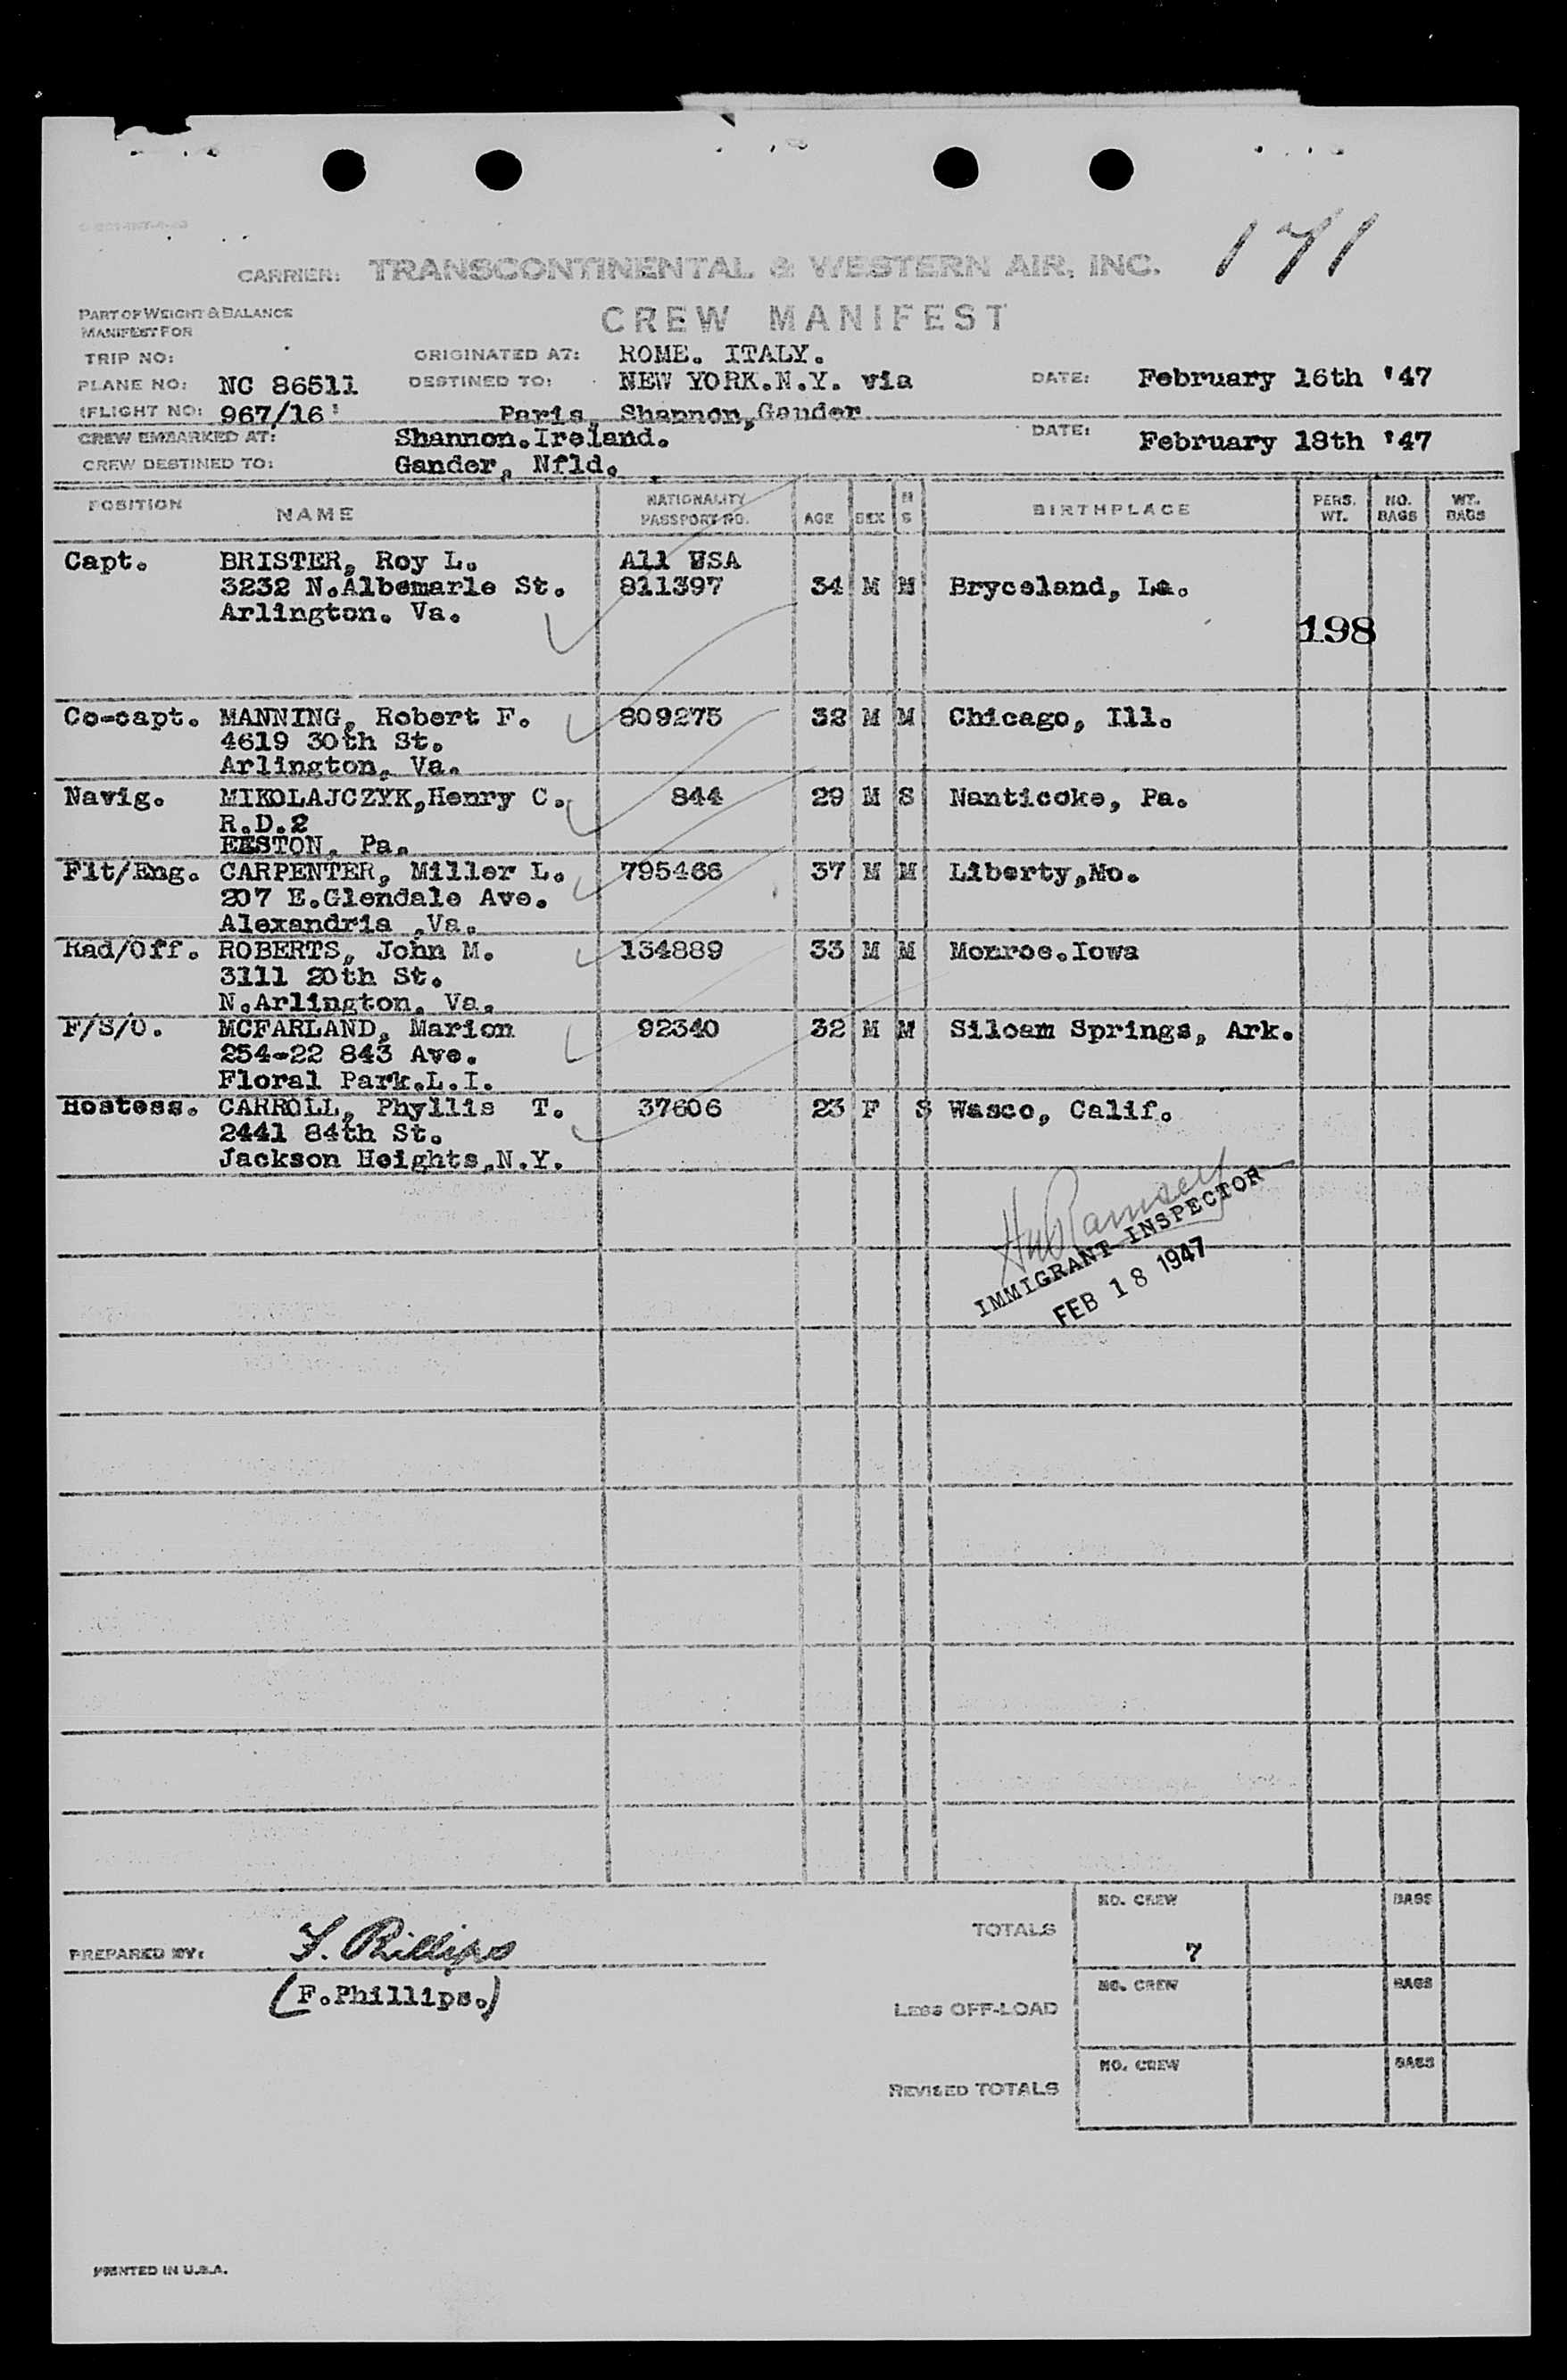 171
CARRIER: TRANSCONTINENTAL & WESTERN AIR, INC.
PART OF WEIGHT & BALANCE
MANIFEST FOR
CREW MANIFEST
TRIP NO:
ORIGINATED AT: ROME. ITALY.
PLANE NO: NC 86511 DESTINED TO: NEW YORK.N.Y. via DATE: February 16th '47
FLIGHT NO: 967/16 Paris, Shannon,Gander
CREW EMBARKED AT: Shannon.Ireland. DATE: February 18th '47
CREW DESTINED TO: Gander, Nfld.
POSITION NAME NATIONALITY PASSPORT NO. AGE SEX M S BIRTHPLACE PERS. WT. NO. BAGS WT. BAGS
Capt. BRISTER, Roy L. All USA
3232 N.Albemarle St. 811397 34 M M Bryceland, La.
Arlington. Va.
198
Co-capt. MANNING, Robert F. 809275 32 M M Chicago, Ill.
4619 30th St.
Arlington, Va.
Navig. MIKOLAJCZYK,Henry C. 844 29 M S Nanticoke, Pa.
R.D.2
EESTON. Pa.
Flt/Eng. CARPENTER, Miller L. 795466 37 M M Liberty,Mo.
207 E.Glendale Ave.
Alexandria ,Va.
Rad/Off. ROBERTS, John M. 134889 33 M M Monroe.Iowa
3111 20th St.
N.Arlington. Va.
F/S/O. MCFARLAND, Marion 92340 32 M M Siloam Springs, Ark.
254-22 843 Ave.
Floral Park.L.I.
Hostess. CARROLL, Phyllis T. 37606 23 F S Wasco, Calif.
2441 84th St.
Jackson Heights,N.Y.
Ramsey
IMMIGRANT INSPECTOR
FEB 18 1947
NO. CREW BAGS
TOTALS 7
PREPARED BY: F. Phillips
(F.Phillips.)
NO. CREW BAGS
LESS OFF-LOAD
NO. CREW BAGS
REVISED TOTALS
PRINTED IN U.S.A.